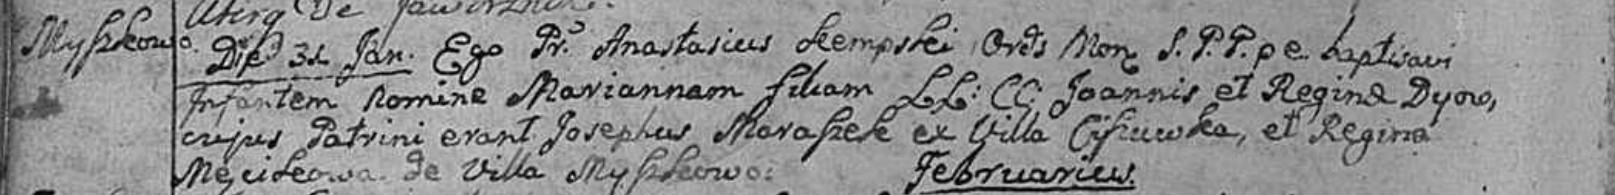 Uterq De Jaworznik.
Myszkowo. Die 31 Jan. Ego Pr. Anastasius Kempski Ords Mon S. P. P. pe. baptisavi
Infantem nomine Mariannam filiam LL: CC: Joannis et Reginæ Dyow,
cujus Patrini erant Josephus Maraszek ex Villa Ciszuwka, et Regina
Męcikowa de Villa Myszkowo:
Februarius.